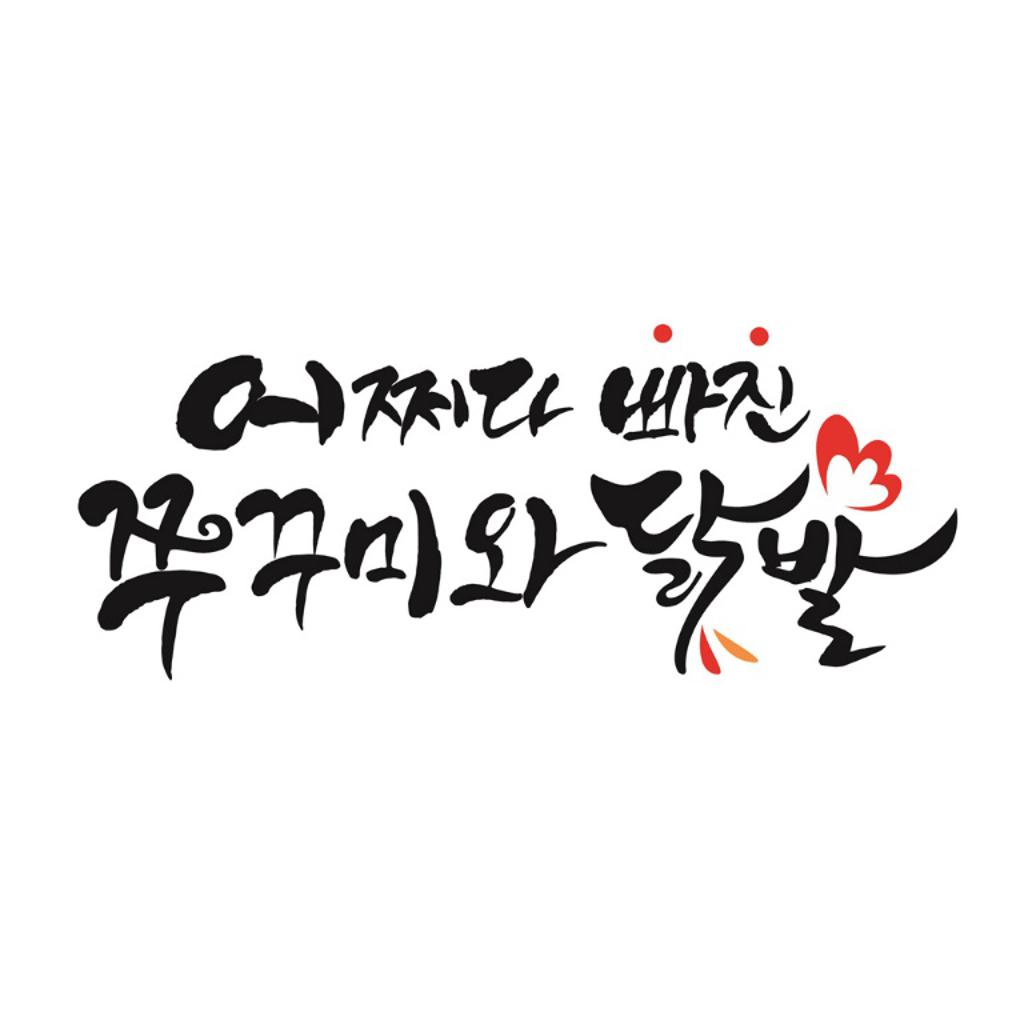 어찌다 빠진
쭈꾸미와 닭발